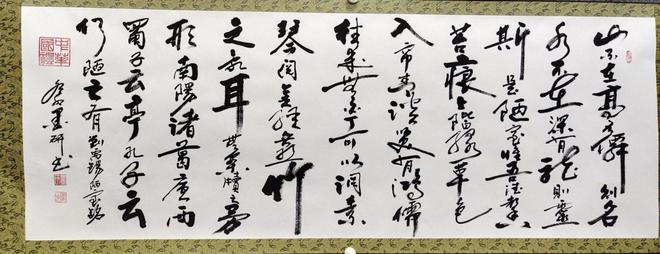 山不在高有僊则名
水不在深有龍则靈
斯是陋室惟吾德馨
苔痕上階緑草色
入帘青談笑有鴻儒
往来無白丁可以調素
琴閲金經無絲竹
之乱耳無案牘之勞
形南陽諸葛廬西
蜀子云亭孔子云
何陋之有劉禹錫陋室銘
墨研书